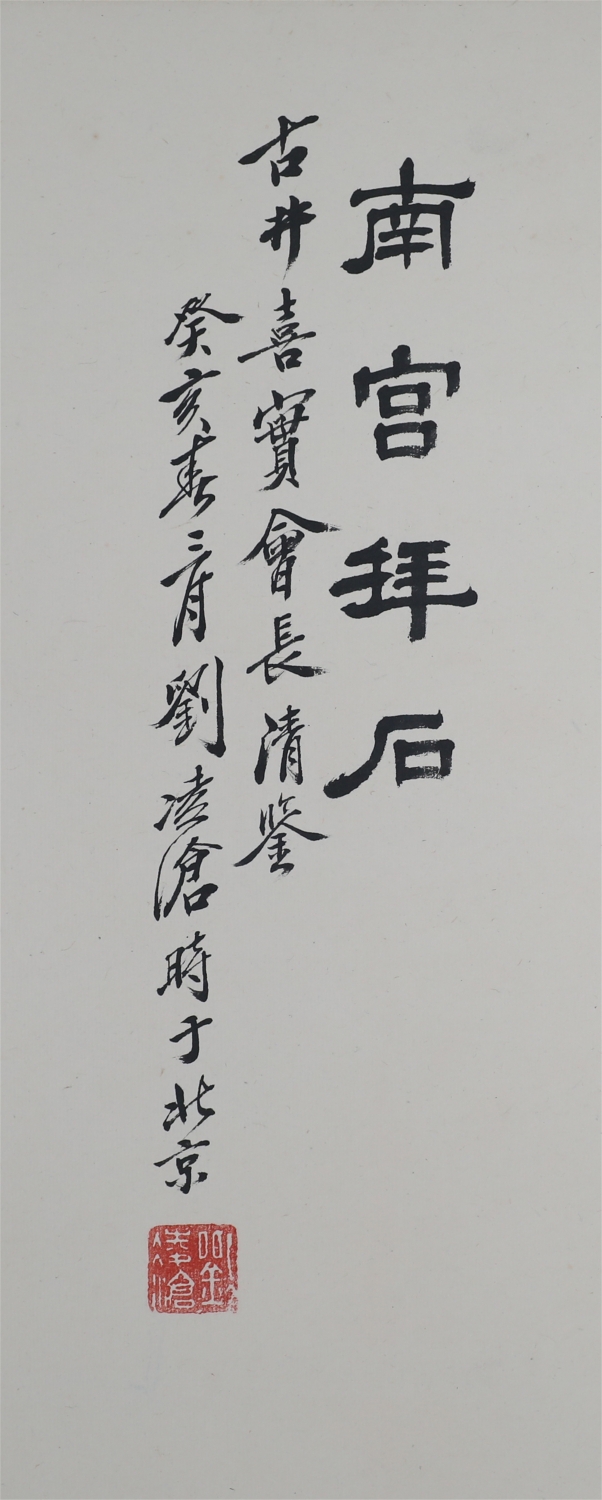 南宮拜石
古井喜實會長清鑒
癸亥春二月劉凌滄時于北京
劉凌滄